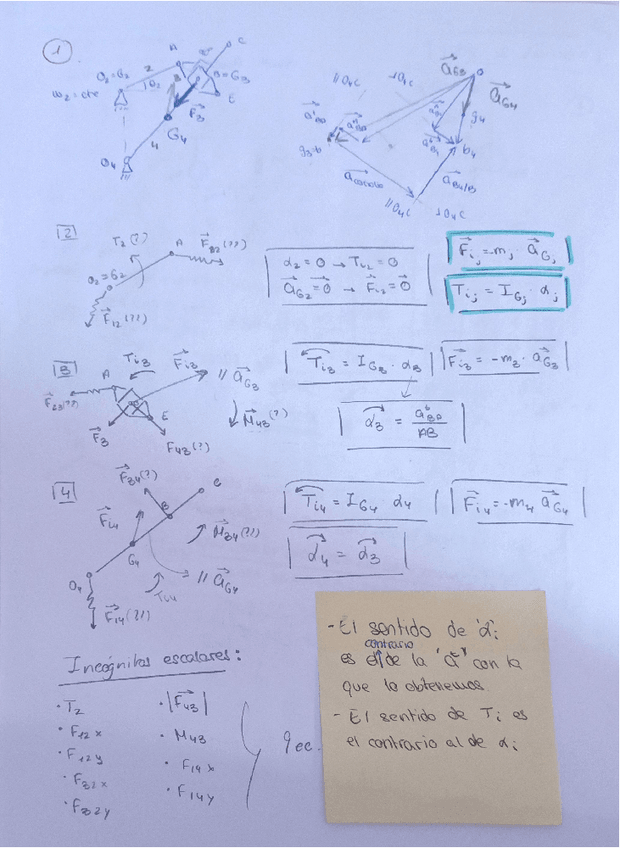 1
A
C
2
B=G3
O2=G2
θ2
ω2=cte
E
F3
G4
4
O4
aG3
o
aG4
//O4C
⊥O4C
g4
g3=b
b4
acoriolis
aB4/B
//O4C
⊥O4C
2
T2(?)
A
F32(??)
O2=G2
F12(??)
α2=0 → Ti2=0
aG2=0 → Fi2=0
Fij=-mj·aGj
Tij=IGj·αj
3
A
Ti3
Fi3
//aG3
F23(??)
E
F3
F43(?)
M43(?)
Ti3=IG3·α3
Fi3=-m3·aG3
α3=
AB
4
F34(?)
C
B
Fi4
G4
M34(?)
O4
Ti4
//aG4
F14(??)
Ti4=IG4 α4
Fi4=-m4 aG4
α4=α3
Incógnitas escalares:
·T2
·|F43|
·F12x
·M43
·F12y
·F14x
·F32x
·F14y
·F32y
9 ec.
-El sentido de 'α'i
contrario
es el de la 'at' con la
que lo obtenemos
-El sentido de Ti es
el contrario al de αi